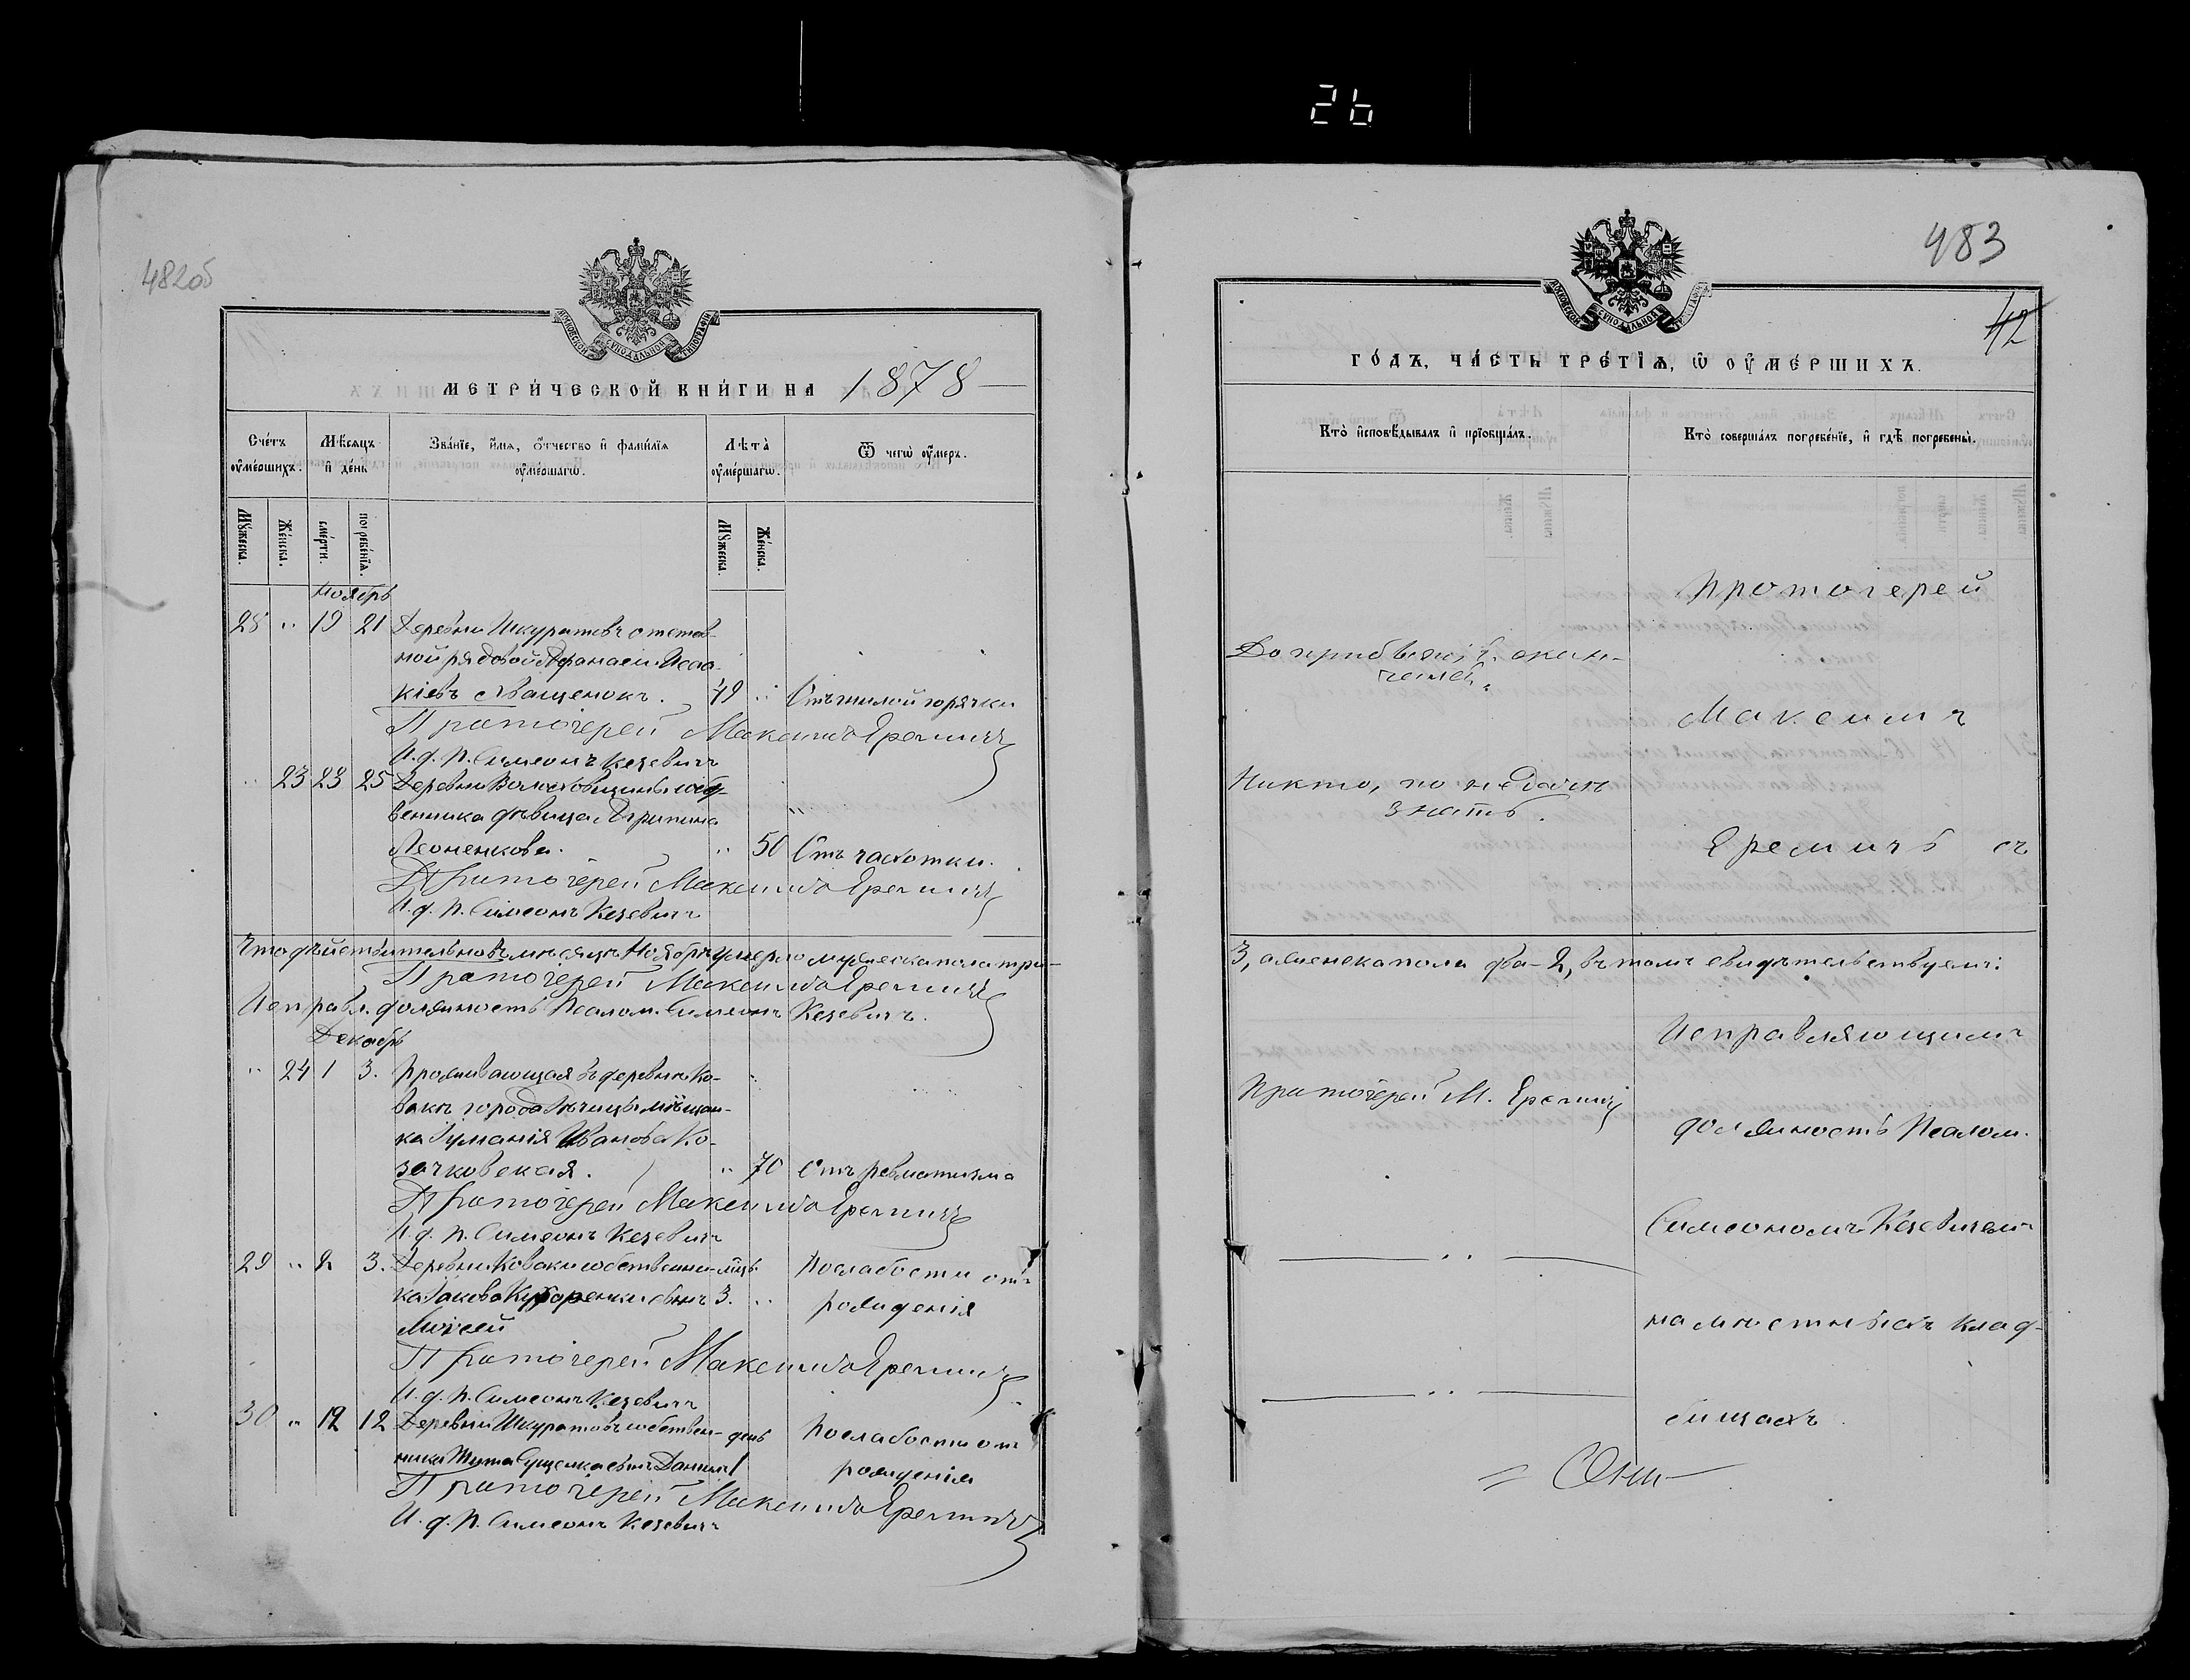 26
482об
МЕТРИ́ЧЕСКОЙ КНИ́ГИ НА 1878
Сче́тъ ᲂу҆ме́ршихъ.
Мѣ́сяцъ и҆ де́нь
Зва́нїе, и҆́мѧ, ѻ҆́тчество и҆ фами́лїѧ ᲂу҆ме́ршагѡ.
Лѣ́та ᲂу҆ме́ршагѡ.
Ѿ чегѡ̀ ᲂу҆́меръ.
Мꙋ́жеска.
Же́нска.
сме́рти.
погребе́нїѧ.
Мꙋ́жеска.
Же́нска.
Ноябрь
28 " 19 21 Деревни Шкуратовъ отстав-
ной рядовой Афанасій Исаа-
кіевъ Иващенокъ. 49 " Отъ гнилой горячки
Протоіерей Максимъ Еремичъ
И. д. п. Симеонъ Кезевичъ
" 23 23 25 Деревни собст-
венника дѣвица Агрипина
Леоненкова. " 50 Отъ чахотки.
Протоіерей Максимъ Еремичъ
И. д. п. Симеонъ Кезевичъ
Что дѣйствительно въ мѣсяцѣ Ноябрѣ умерло мужеска пола три-
Протоіерей Максимъ Еремичъ
Исправл. должность Псалом. Симеонъ Кезевичъ.
Декабрь
" 24 1 3. Проживающая въ деревнѣ Ко-
вакѣ города Рѣчицы мѣщан-
ка Іуліанія Иванова Ко-
зачковская. " 70 Отъ ревматизма
Протоіерей Максимъ Еремичъ
И. д. п. Симеонъ Кезевичъ
29 " 2 3. Деревни Коваки собственни- мѣс. По слабости отъ
ка Іакова сынъ 3. " рожденія
Моисей
Протоіерей Максимъ Еремичъ
И. д. п. Симеонъ Кезевичъ
30 " 12 12 Деревни Шкуратовъ собствен- день По слабости от
ника Тита сынъ Даниилъ 1 рожденія
Протоіерей Максимъ Еремичъ
И. д. п. Симеонъ Кезевичъ
483
42
ГО́ДЪ, ЧА́СТЬ ТРЕ́ТЇѦ, Ѡ҆ ОУ҆МЕ́РШИХЪ.
Кто̀ и҆сповѣ́дывалъ и҆ прїѡбща́лъ.
Кто̀ соверша́лъ погребе́нїе, и҆ гдѣ̀ погребены̀.
Протоіерей
До прибытія скон-
чался.
Максимъ
Никто, по не дачѣ
знать.
Еремичъ съ
3, а женска пола два- 2, въ томъ свидѣтельствуемъ:
Исправляющимъ
Протоіерей М. Еремичъ
должность Псалом.
Симеономъ Кезевичемъ
— " —
на мѣстныхъ клад-
— " —
бищахъ
= Они